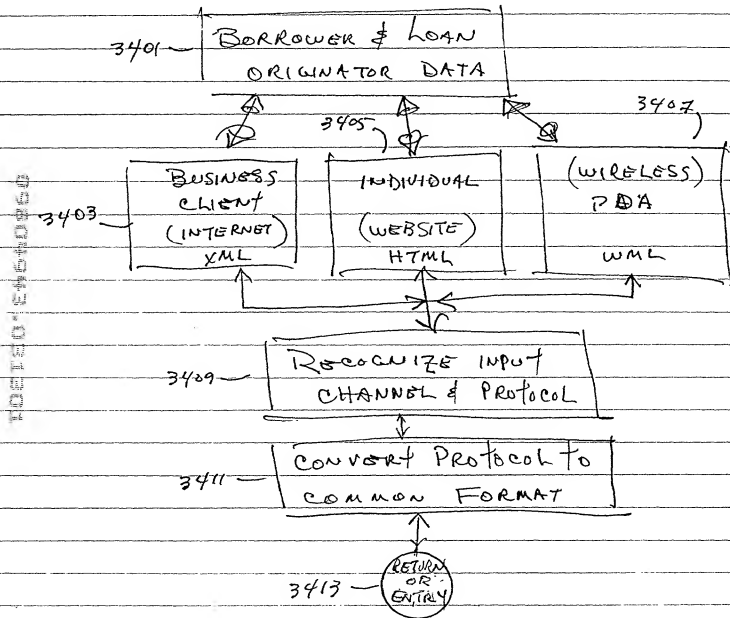 3401
BORROWER & LOAN
ORIGINATOR DATA
3407
3405
3403
BUSINESS
CLIENT
(INTERNET)
XML
INDIVIDUAL
(WEBSITE)
HTML
(WIRELESS)
PDA
WML
3409
RECOGNIZE INPUT
CHANNEL & PROTOCOL
3411
CONVERT PROTOCOL TO
COMMON FORMAT
3413
RETURN
OR
ENTRY